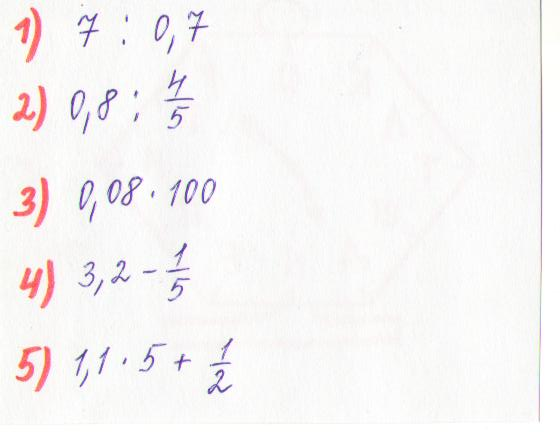 1) 7 : 0,7
2) 0,8 : 4/5
3) 0,08 · 100
4) 3,2 - 1/5
5) 1,1 · 5 + 1/2